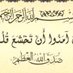 بسم الله الرحمن الرحيم
آمَنُوا أَن تَخْشَعَ قُلُ
صدق الله العظيم